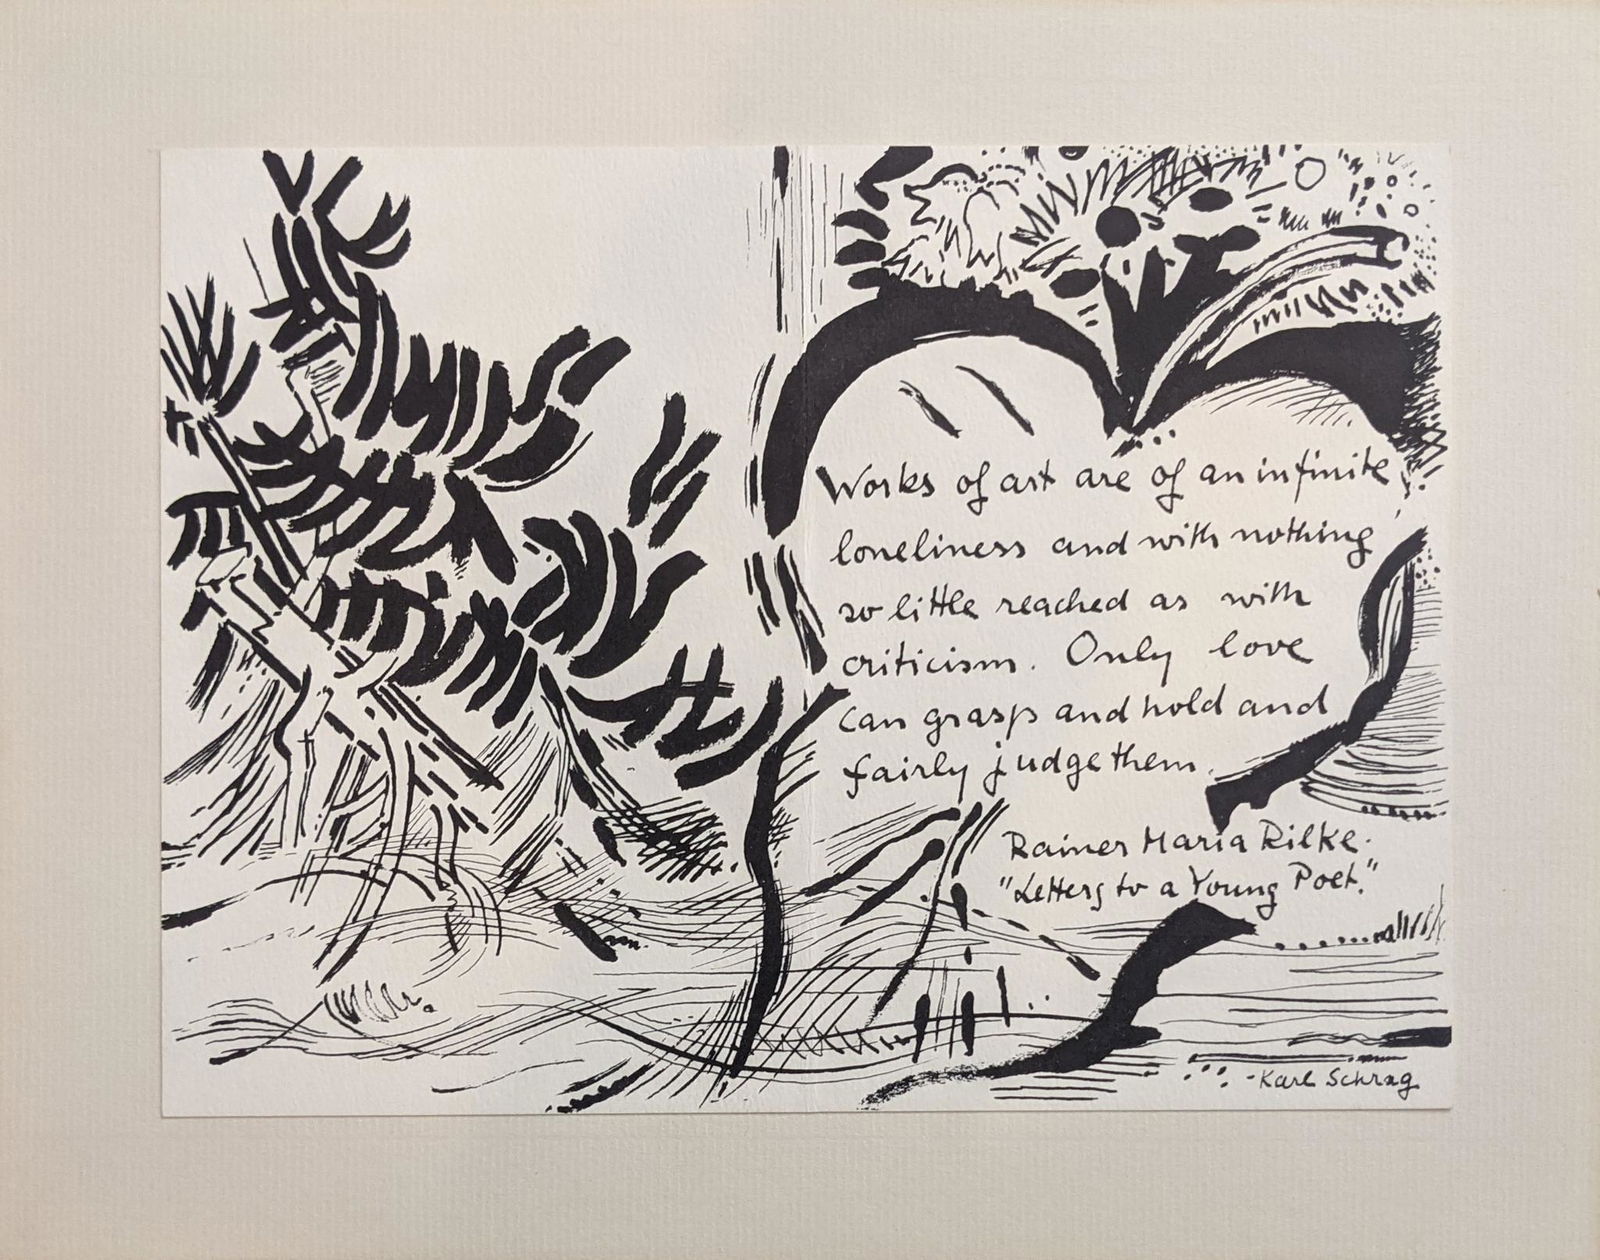 Works of art are of an infinite
loneliness and with nothing
so little reached as with
criticism. Only love
can grasp and hold and
fairly judge them.
Rainer Maria Rilke.
"Letters to a Young Poet."
Karl Schrag